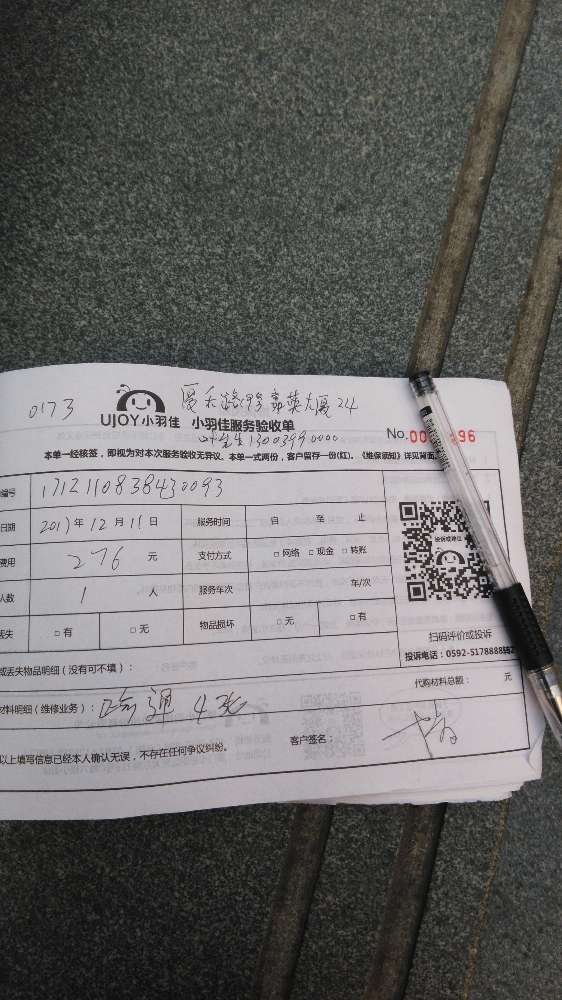 0173
UJOY小羽佳 小羽佳服务验收单
13003990000
No.
本单一经核签，即视为对本次服务验收无异议。本单一式两份，客户留存一份(红)。《维保须知》详见背面
编号 171211083843 0093
日期 2017年12月11日 服务时间 自 至 止
费用 276 元 支付方式 □网络 □现金 □转账
人数 1 人 服务车次 车/次
丢失 □有 □无 物品损坏 □无 □有
扫码评价或投诉
投诉电话：0592-5178888
或丢失物品明细（没有可不填）：
代购材料总额： 元
材料明细（维修业务）： 4张
以上填写信息已经本人确认无误，不存在任何争议纠纷。 客户签名：